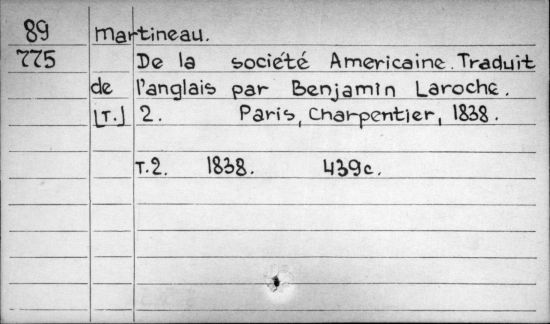 89 Martineau.
775 De la société Americaine. Traduit
de l'anglais par Benjamin Laroche.
[T.] 2. Paris, Charpentier, 1838.
T.2. 1838. 439c.